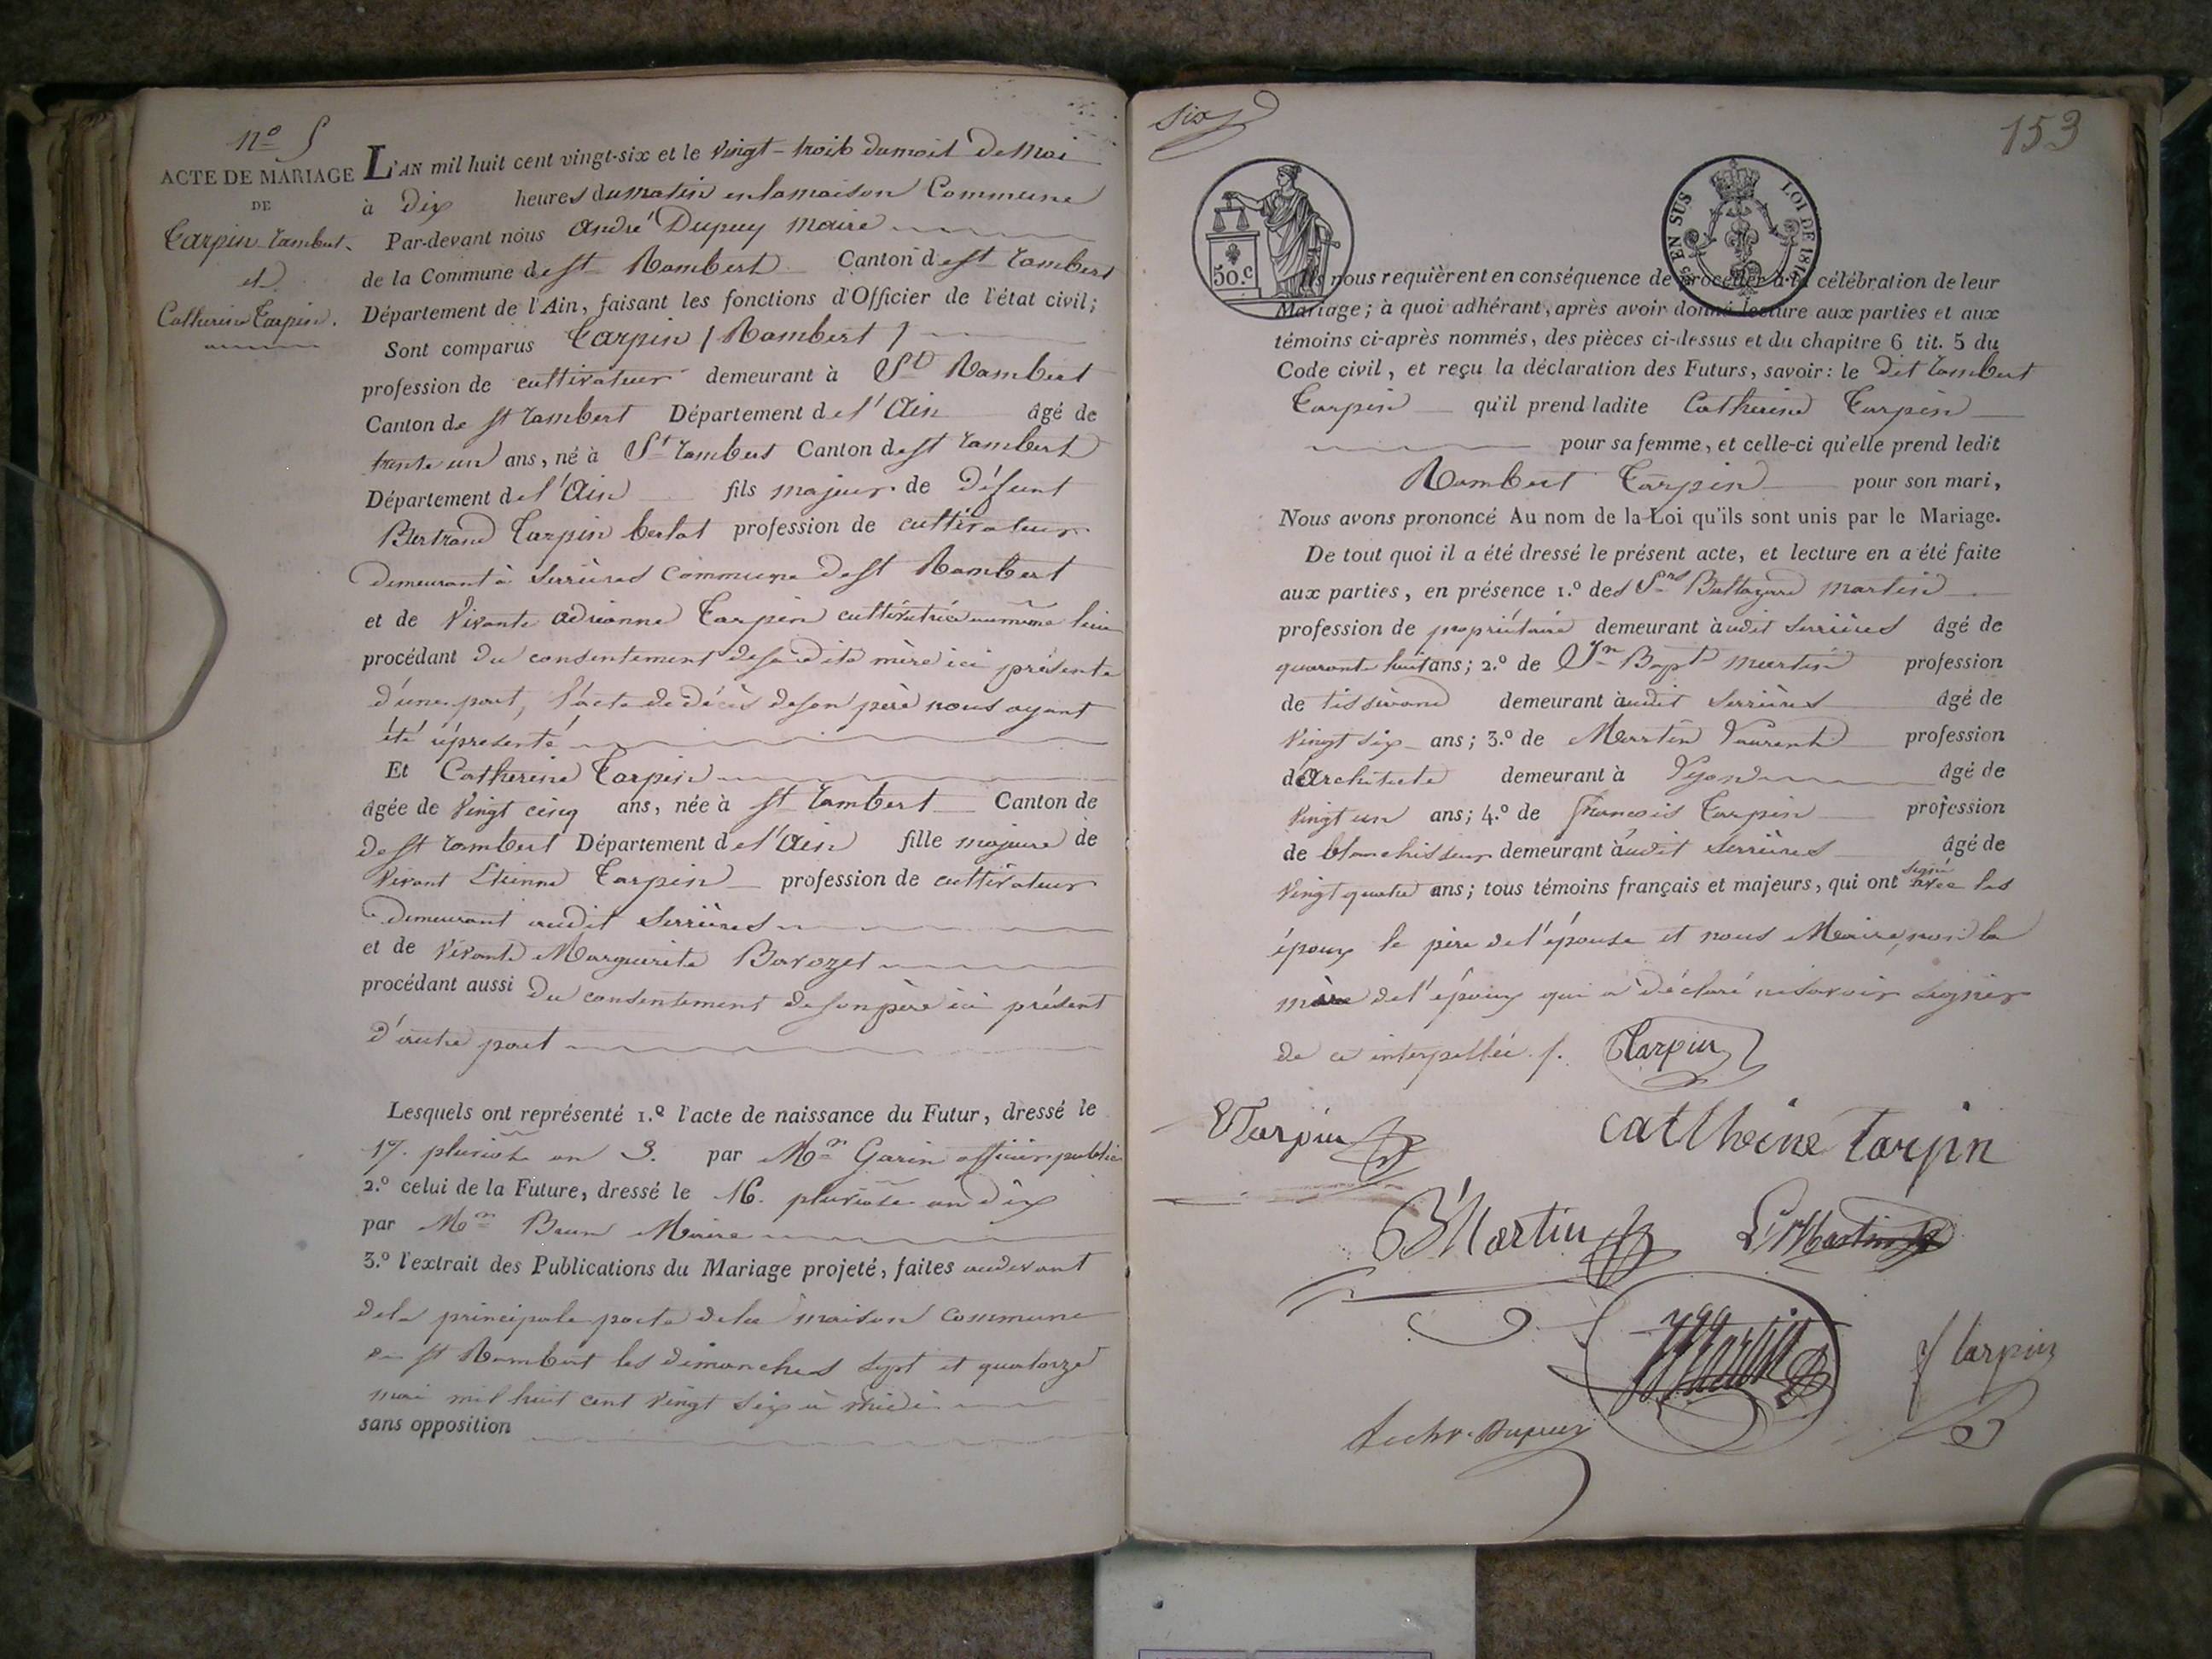 nº 5
ACTE DE MARIAGE
DE
Tarpin rambert.
et
Catherine Tarpin.
L'AN mil huit cent vingt-six et le vingt-trois du mois de Mai
à dix heures du matin en la maison Commune
Par-devant nous andré Dupuy maire
de la Commune de st Rambert Canton de st rambert
Département de l'Ain, faisant les fonctions d'Officier de l'état civil;
Sont comparus Tarpin / Rambert /
profession de cultivateur demeurant à St Rambert
Canton de st rambert Département de l'Ain âgé de
trente un ans, né à St rambert Canton de st rambert
Département de l'Ain fils majeur de défunt
Bertrand Tarpin profession de cultivateur
demeurant à Serrières commune de st Rambert
et de vivante adrianne Tarpin cultivatrice au même lieu
procédant du consentement de sadite mère ici présente
d'une part, l'acte de décès de son père nous ayant
été représenté
Et Catherine Tarpin
âgée de vingt cinq ans, née à st rambert Canton de
de st rambert Département de l'Ain fille majeure de
vivant Etienne Tarpin profession de cultivateur
demeurant audit Serrières
et de vivante Marguerite Bavozet
procédant aussi du consentement de son père ici présent
d'autre part
Lesquels ont représenté 1.º l'acte de naissance du Futur, dressé le
17. pluviôse an 3. par Mr Garin officier public
2.º celui de la Future, dressé le 16. pluviôse an dix
par Mr Brun Maire
3.º l'extrait des Publications du Mariage projeté, faites au devant
de la principale porte de la maison commune
de st Rambert les dimanches sept et quatorze
mai mil huit cent vingt six à midi
sans opposition
six
153
50.c
5e EN SUS
LOI DE 1816
Ils nous requièrent en conséquence de procéder à la célébration de leur
Mariage; à quoi adhérant, après avoir donné lecture aux parties et aux
témoins ci-après nommés, des pièces ci-dessus et du chapitre 6 tit. 5 du
Code civil, et reçu la déclaration des Futurs, savoir: le dit rambert
Tarpin qu'il prend ladite Catherine Tarpin
pour sa femme, et celle-ci qu'elle prend ledit
Rambert Tarpin pour son mari,
Nous avons prononcé Au nom de la Loi qu'ils sont unis par le Mariage.
De tout quoi il a été dressé le présent acte, et lecture en a été faite
aux parties, en présence 1.º des Srs Baltazard Martin
profession de propriétaire demeurant audit Serrières âgé de
quarante huit ans; 2.º de Jn Bapte Martin profession
de tisserand demeurant audit Serrières âgé de
vingt six ans; 3.º de Martin Laurent profession
d'architecte demeurant à Lyon âgé de
vingt un ans; 4.º de françois Tarpin profession
de blanchisseur demeurant audit Serrières âgé de
vingt quatre ans; tous témoins français et majeurs, qui ont signé avec les
époux le père de l'épouse et nous Maire, non la
mère de l'époux qui a déclaré ne savoir signer
de ce interpellée. /. Tarpin
Tarpin
catlheine Tarpin
B Martin
L Martin
Martin
f tarpin
Dupuy